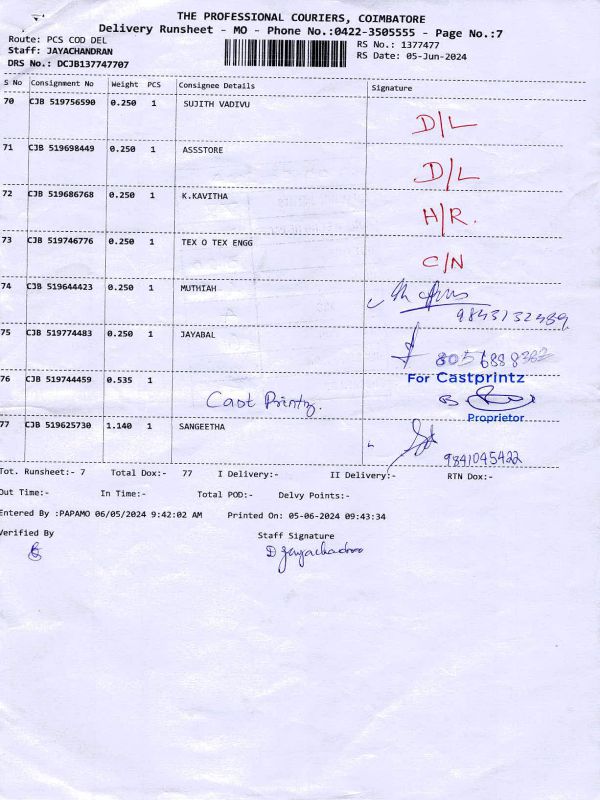 THE PROFESSIONAL COURIERS, COIMBATORE
Delivery Runsheet - MO - Phone No.:0422-3505555 - Page No.:7
Route: PCS COD DEL
Staff: JAYACHANDRAN
DRS No.: DCJB137747707
RS No.: 1377477
RS Date: 05-Jun-2024
S No Consignment No Weight PCS Consignee Details Signature
70 CJB 519756590 0.250 1 SUJITH VADIVU D/L
71 CJB 519698449 0.250 1 ASSSTORE D/L
72 CJB 519686768 0.250 1 K.KAVITHA H/R.
73 CJB 519746776 0.250 1 TEX O TEX ENGG C/N
74 CJB 519644423 0.250 1 MUTHIAH
9843132489
75 CJB 519774483 0.250 1 JAYABAL
For Castprintz
76 CJB 519744459 0.535 1 Cast Printz.
Proprietor
77 CJB 519625730 1.140 1 SANGEETHA
9841045422
Tot. Runsheet:- 7 Total Dox:- 77 I Delivery:- II Delivery:- RTN Dox:-
Out Time:- In Time:- Total POD:- Delvy Points:-
Entered By :PAPAMO 06/05/2024 9:42:02 AM Printed On: 05-06-2024 09:43:34
Verified By Staff Signature
D Jayachandran